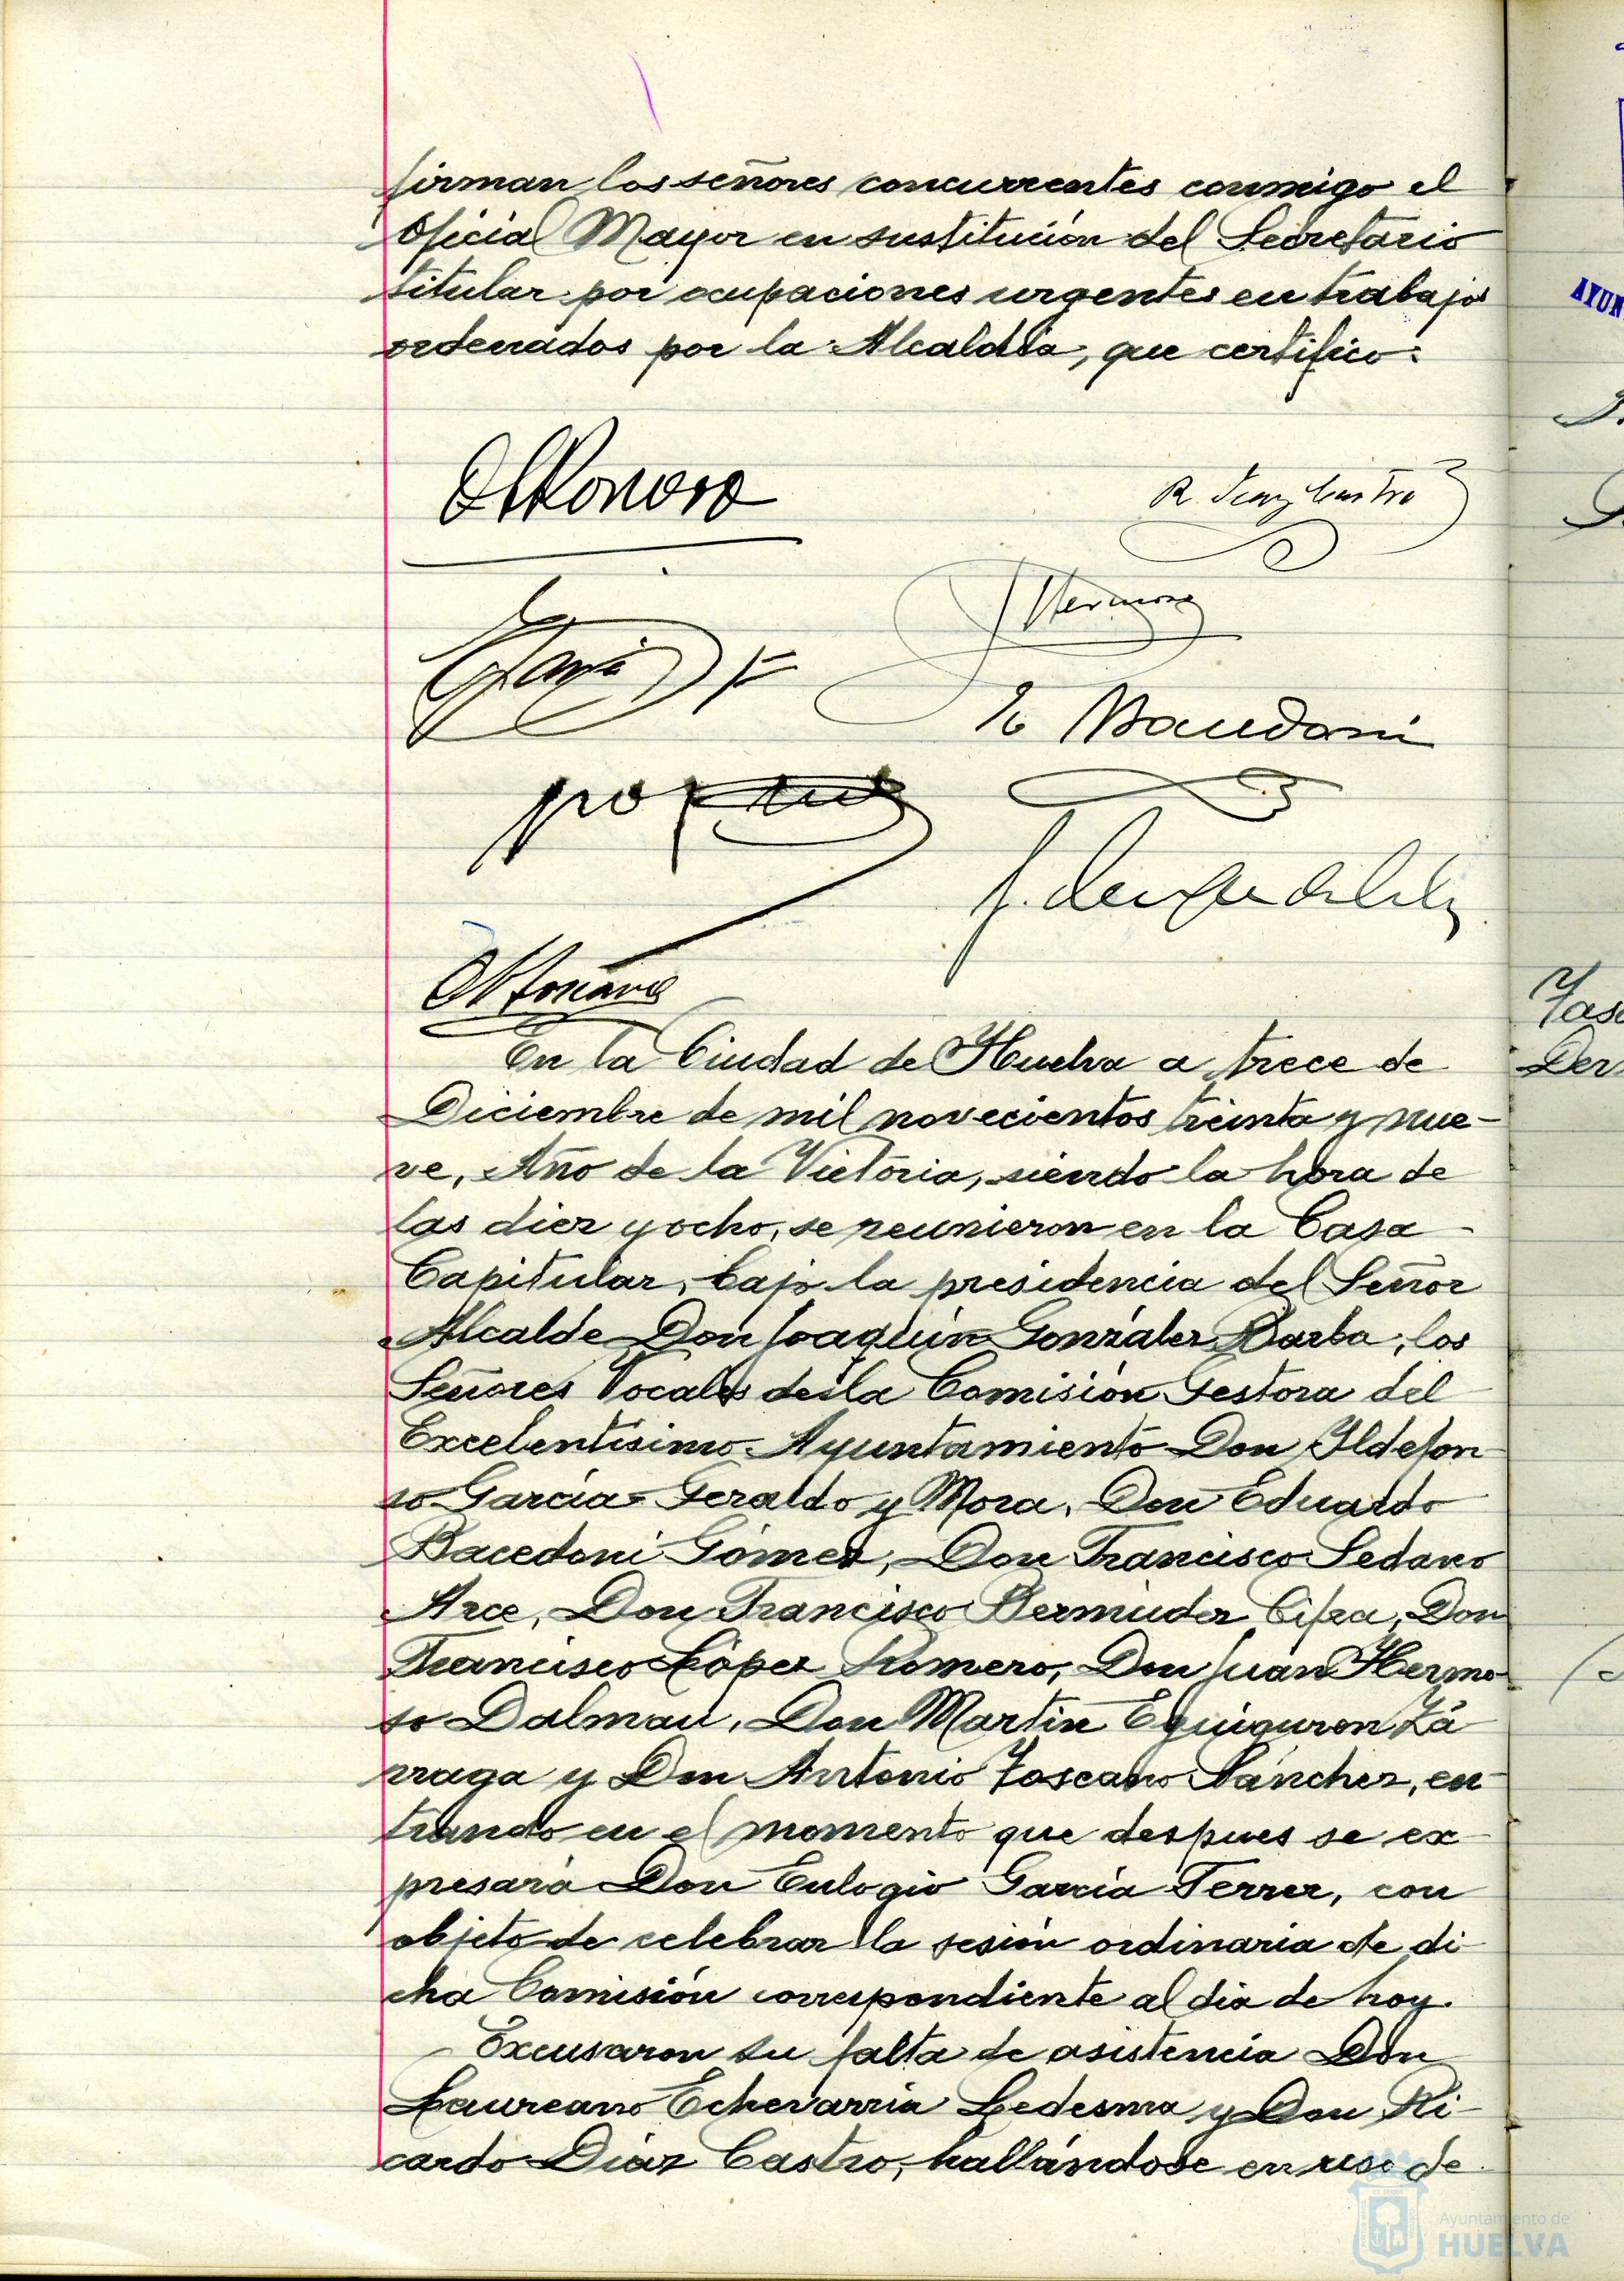 firman los señores concurrentes conmigo el
Oficial Mayor en sustitución del Secretario
titular por ocupaciones urgentes en trabajos
ordenados por la Alcaldía, que certifico:
R. Diaz Castro
J Hermoso
En la Ciudad de Huelva a trece de
Diciembre de mil novecientos treinta y nue-
ve, Año de la Victoria, siendo la hora de
las diez y ocho, se reunieron en la Casa
Capitular, bajo la presidencia del Señor
Alcalde Don Joaquín González Barba, los
Señores Vocales de la Comisión Gestora del
Excelentísimo Ayuntamiento Don Ildefon
so García-Geraldo y Mora, Don Eduardo
Bacedoni Gómez, Don Francisco Sedano
Arce, Don Francisco Bermúdez Cifra, Don
Francisco López Romero, Don Juan Hermo
so Dalmau, Don Martín Eguiguren Zá
rraga y Don Antonio Toscano Sánchez, en
trando en el momento que despues se ex
presará Don Eulogio García Ferrer, con
objeto de celebrar la sesión ordinaria de di
cha Comisión correspondiente al dia de hoy.
Excusaron su falta de asistencia Don
Laureano Echevarría Ledesma y Don Ri-
cardo Díaz Castro, hallándose en uso de
AYUN
Ayuntamiento de
HUELVA